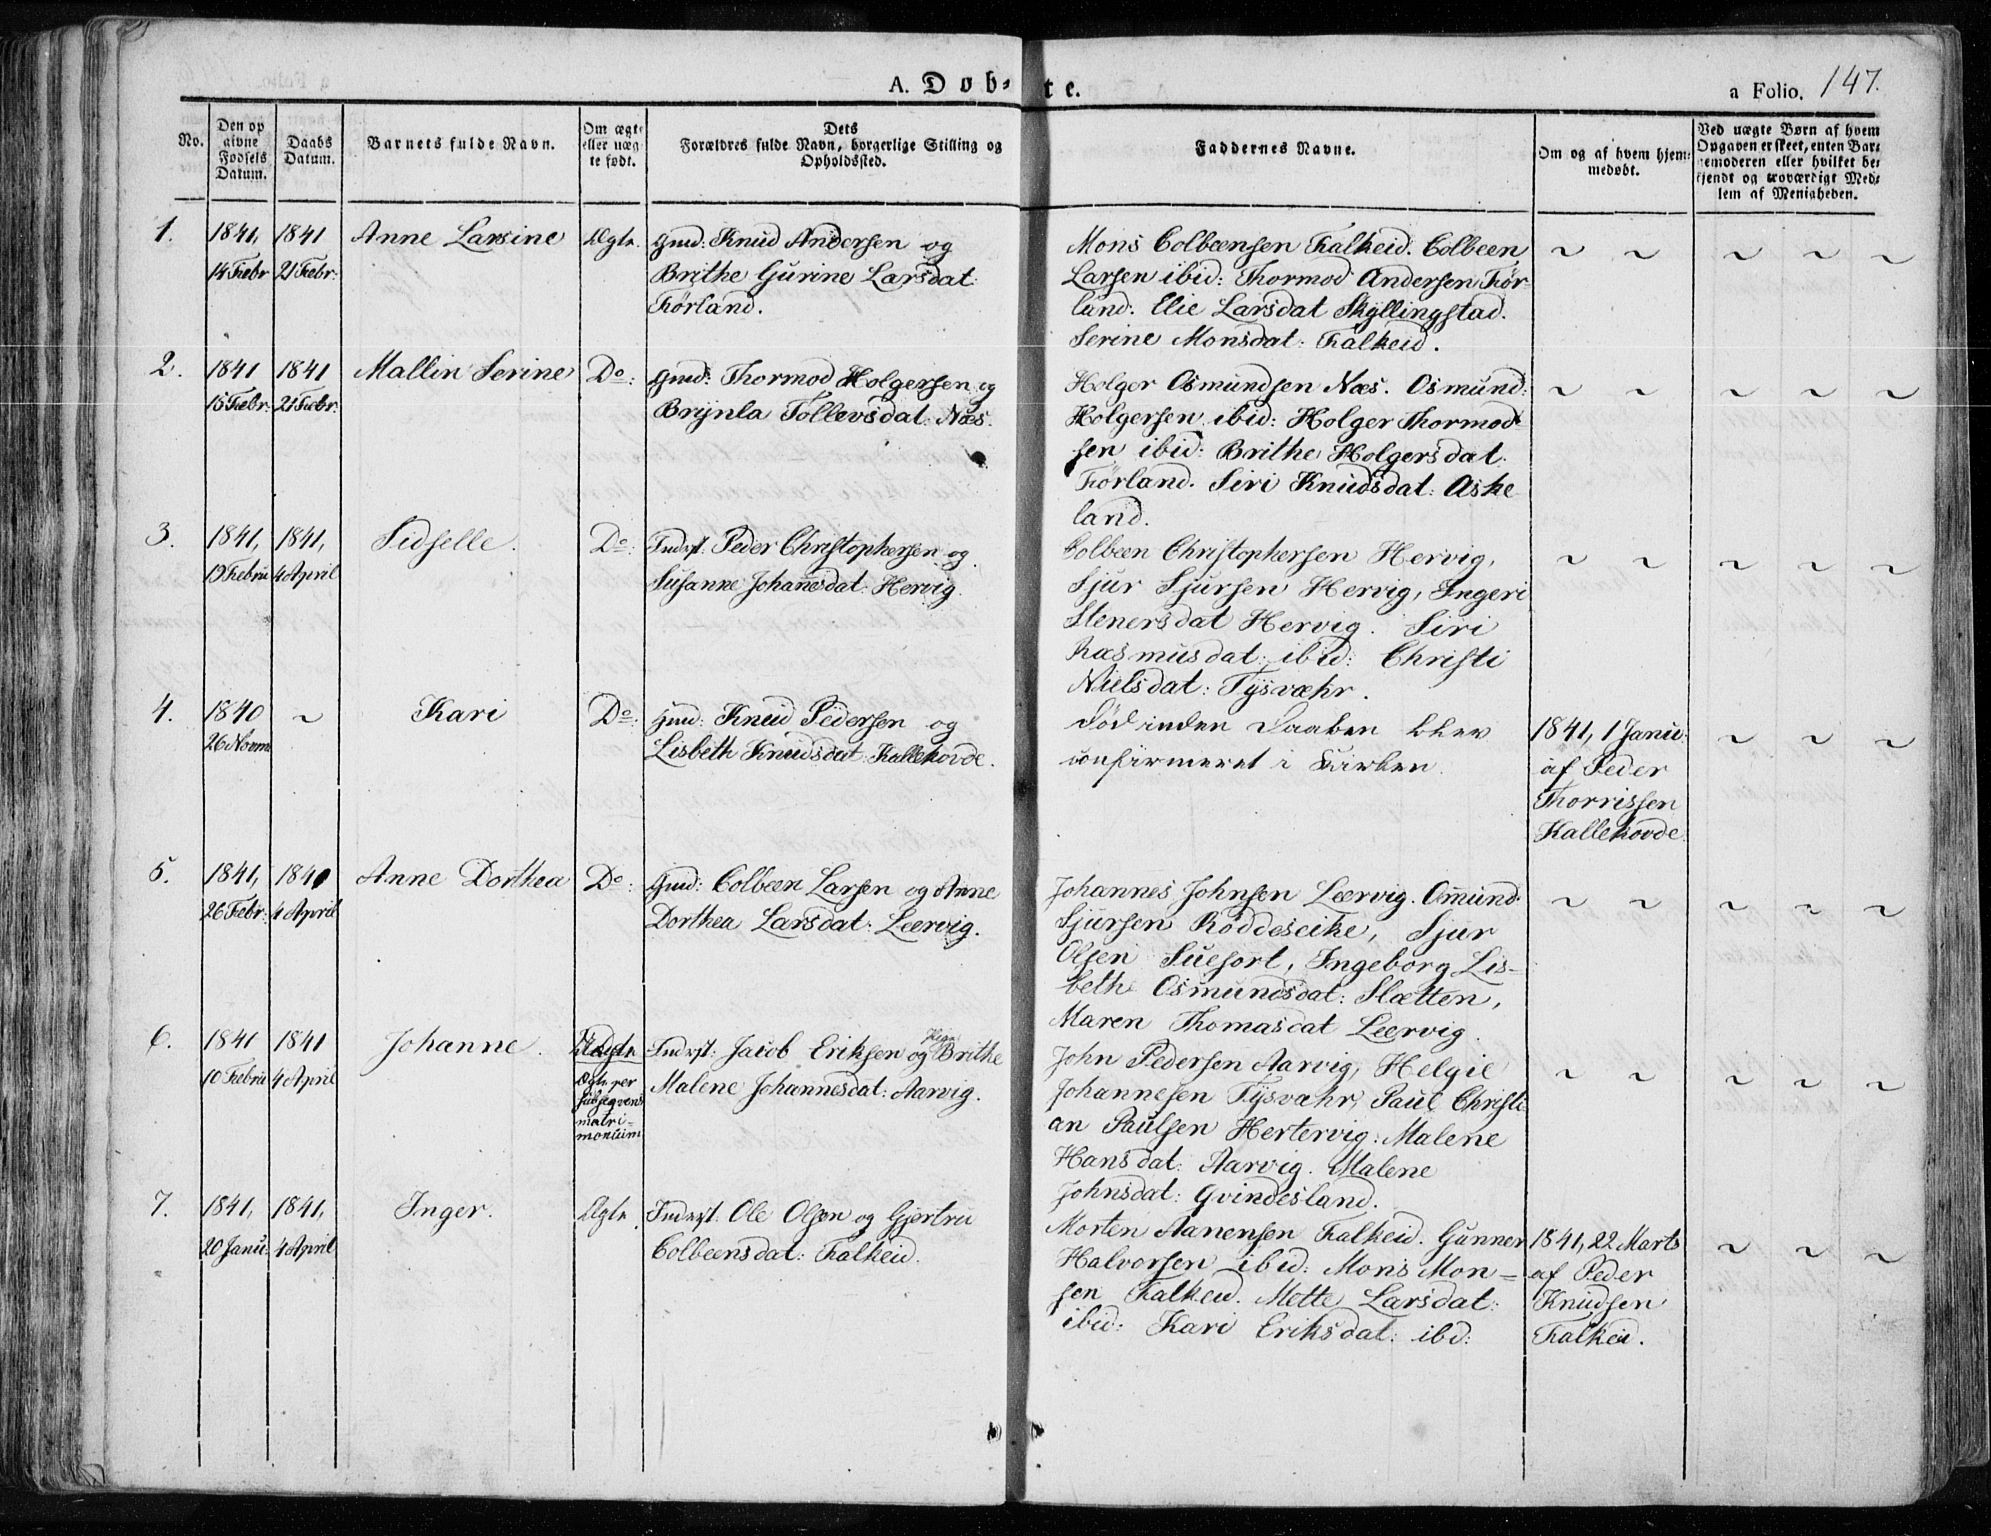 A. Døb-
te.
a Folio. 147.
No.
Den op
givne
Fødsels
Datum.
Daabs
Datum.
Barnets fulde Navn.
Om ægte
eller uæg
te født.
Dets
Forældres fulde Navn, borgerlige Stilling og
Opholdssted.
Faddernes Navne.
Om og af hvem hjem-
medøbt.
Ved uægte Børn af hvem
Opgaven er skeet, enten Bar-
nemoderen eller hvilket be-
kjendt og troværdigt Med-
lem af Menigheden.
1.
1841,
14 Febr
1841
21 Febr:
Anne Larsine
Ægte.
Gmd: Knud Andersen og
Brithe Gurine Larsdat:
Førland.
Mons Colbeensen Falkeid. Colbeen
Larsen ibid: Thormod Andersen Før-
land. Elie Larsdat Skyllingstad.
Serine Monsdat: Falkeid.
~ ~ ~ ~ ~
2.
1841
15 Febr:
1841
21 Febr:
Mallin Serine
Do:
Gmd: Thormod Holgersen og
Brynla Tollevsdat: Næs.
Holger Osmundsen Næs. Osmund:
Holgersen ibid: Holger Thormod-
sen ibid: Brithe Holgersdat.
Førland. Siri Knudsdat: Aske
land.
~ ~ ~ ~ ~
3.
1841,
19 Febru
1841,
4 April
Sidselle.
Do:
Inderst: Peder Christophersen og
Susanne Johannesdat: Hervig.
Colbeen Christophersen Hervig,
Sjur Sjursen Hervig, Ingeri
Stenersdat Hervig. Siri
Rasmusdat: ibid: Christi
Nielsdat: Tysvæhr.
~ ~ ~ ~ ~
4.
1840
26 Novm
~
Kari
Do:
Gmd: Knud Pedersen og
Lisbeth Knudsdat: Kallekovde.
Død inden Daaben blev
confirmeret i Kirken.
1841, 1 Janu:
af Peder
Thorrissen
Kallekovde.
~ ~ ~
5.
1841,
26 Febr:
1841
4 April
Anne Dorthea
Do:
Gmd: Colbeen Larsen og Anne
Dorthea Larsdat: Leervig.
Johannes Johnsen Leervig. Omund
Sjursen Røddeseike, Sjur
Olsen Suefort, Ingeborg Lis-
beth Osmundsdat: Slætten,
Maren Thomasdat Leervig.
~ ~ ~ ~ ~
6.
1841
10 Febru
1841
4 April
Johanne.
Uægte
Ægte per
subseqvens
matri-
monium
Inderst: Jacob Eriksen og Pigen Brithe
Malene Johannesdat: Aarvig.
John Pedersen Aarvig, Helgie
Johannesen Tysvæhr, Paul Christi
an Paulsen Hertervig: Malene
Hansdat: Aarvig. Malene
Johnsdat: Gvindesland.
~ ~ ~ ~ ~
7.
1841,
20 Janu:
1841,
4 April
Inger.
Ægte.
Inderst: Ole Olsen og Gjertru
Colbeensdat: Falkeid.
Morten Aanensen Falkeid. Gunner
Halvorsen ibid: Mons Mon-
sen Falkeid. Mette Larsdat:
ibid: Kari Eriksdat: ibd:
1841, 22 Marts
af Peder
Knudsen
Falkei.
~ ~ ~